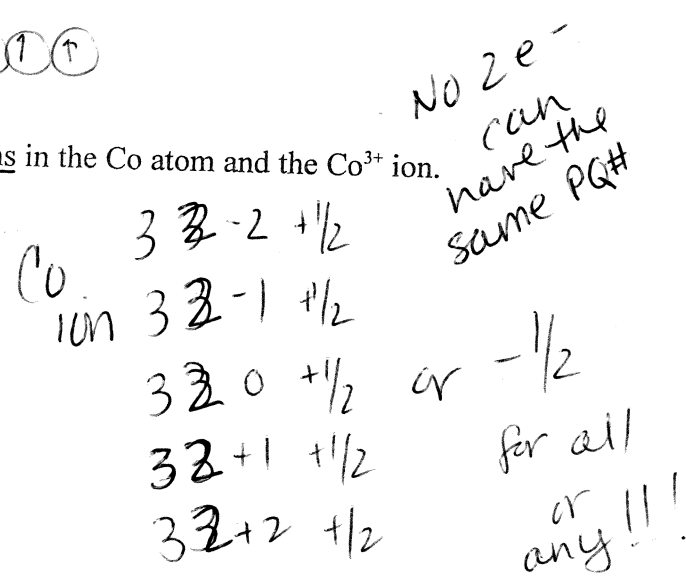 ↑ ↑
No 2 e-
can
have the
same PQ#
s in the Co atom and the Co³⁺ ion.
Co
ion
3 2 -2 +1/2
3 2 -1 +1/2
3 2 0 +1/2 or -1/2
3 2 +1 +1/2
3 2 +2 +1/2
for all
or
any!!!